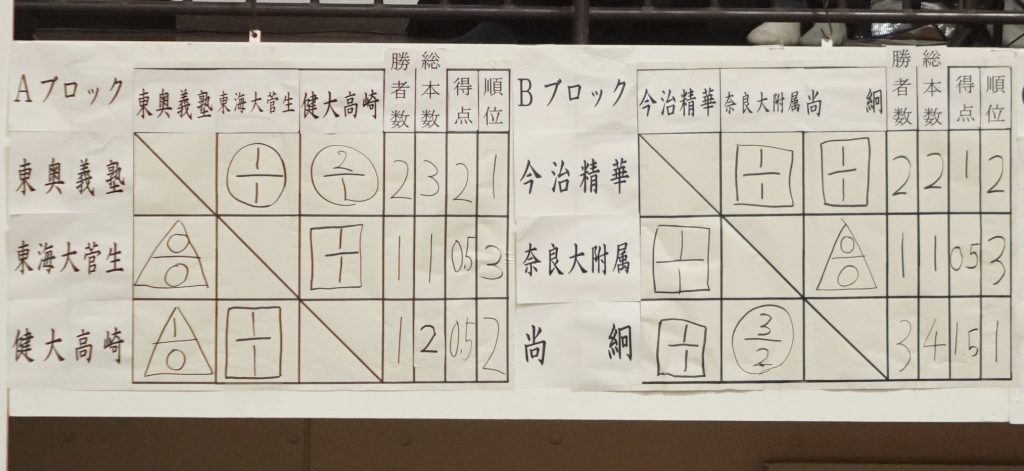 Aブロック 東奥義塾 東海大菅生 健大高崎 勝者数 総本数 得点 順位
東奥義塾 1/1 2/1 2 3 2 1
東海大菅生 0/0 1/1 1 1 0.5 3
健大高崎 1/0 1/1 1 2 0.5 2
Bブロック 今治精華 奈良大附属 尚絅 勝者数 総本数 得点 順位
今治精華 1/1 1/1 2 2 1 2
奈良大附属 1/1 0/0 1 1 0.5 3
尚絅 1/1 3/2 3 4 1.5 1